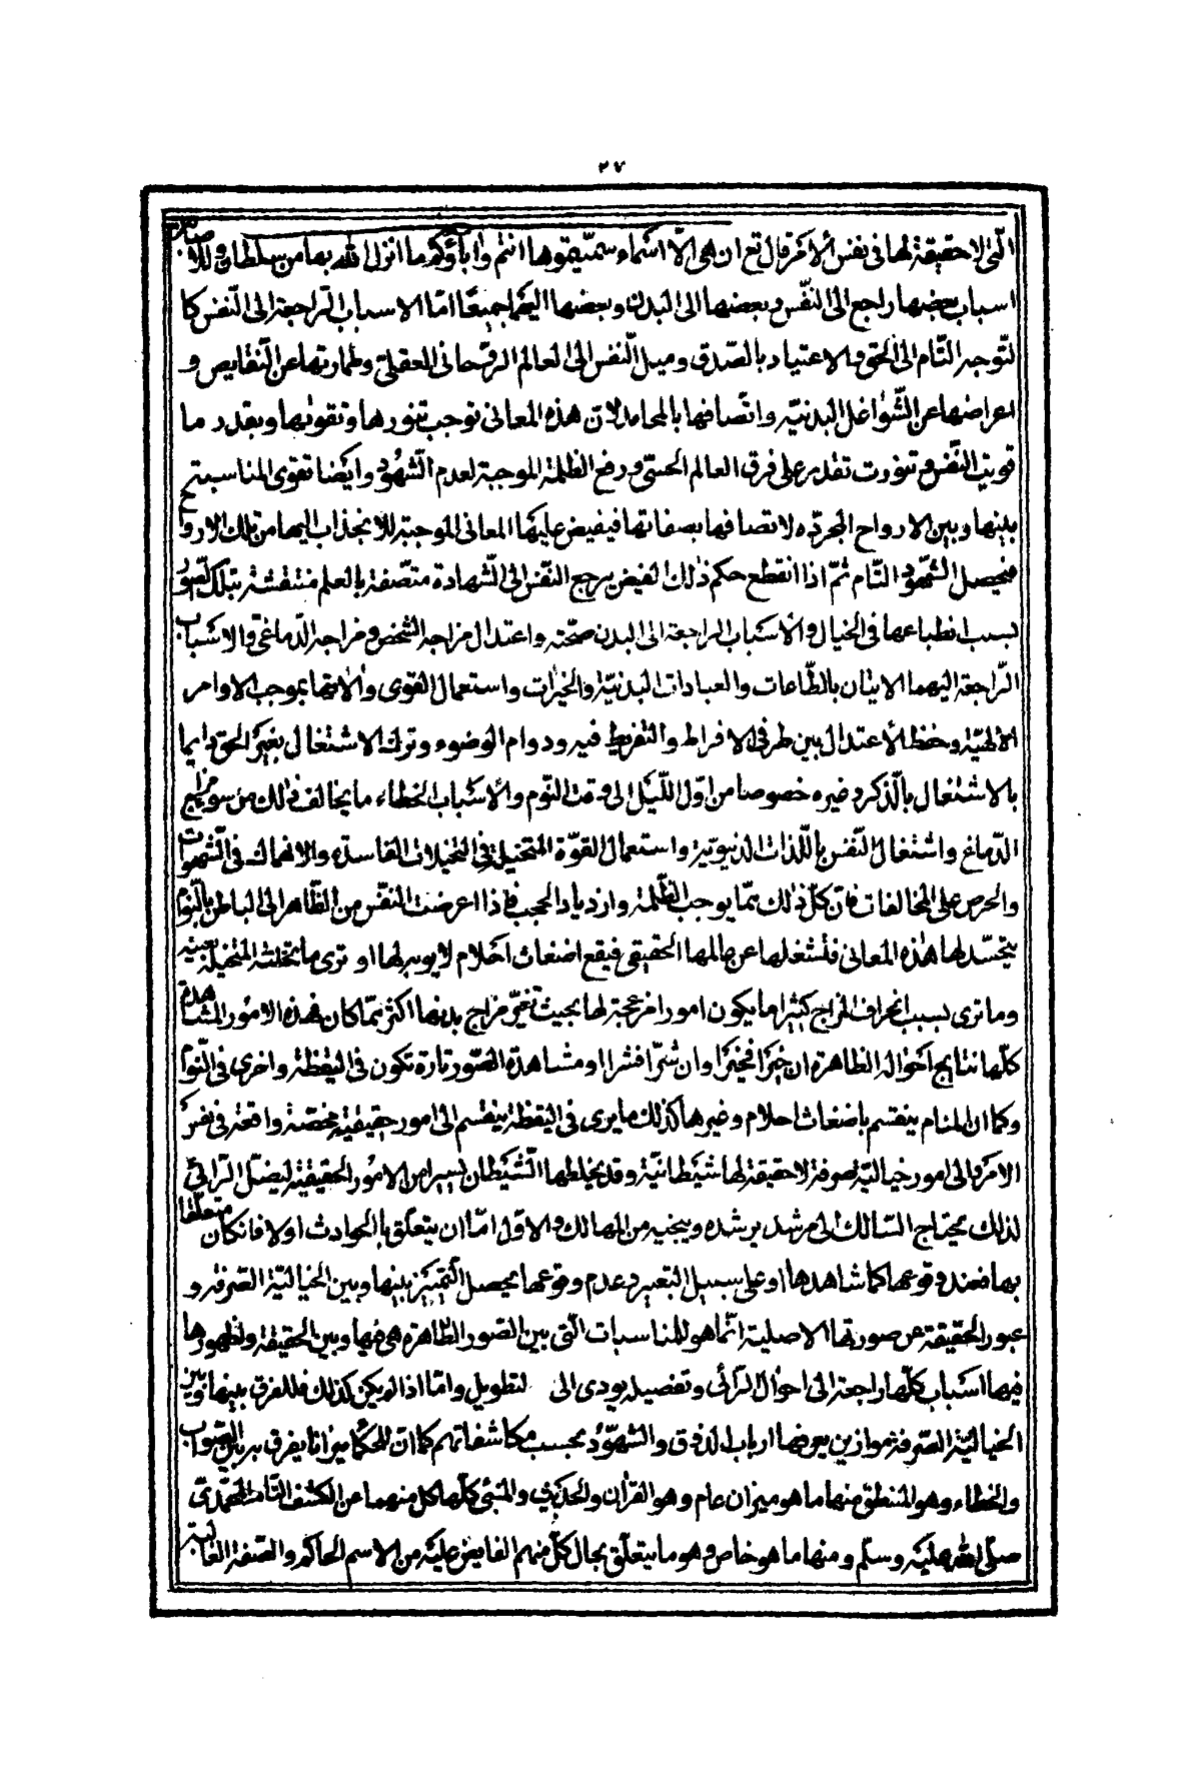 ٢٧
الّتى لا حقيقة لها فى نفس الأمر قال تع ان هى الّا اسماء سمّيتموها انتم واباؤكم ما انزل الله بها من سلطان وللاصابة
اسباب بعضها راجع الى النّفس وبعضها الى البدن وبعضها اليهما جميعًا امّا الاسباب الرّاجعة الى النّفس كا
لتوجه التّام الى الحق والاعتياد بالصّدق وميل النّفس الى العالم الرّوحانى العقلىّ وطهارتها عن النّقايص و
اعراضها عن الشّواغل البدنيّة واتّصافها بالمحامد لان هذه المعانى توجب تنورها وتقويتها وبقدر ما
قويت النّفس وتنورت تقدر على خرق العالم الحسّى ورفع الظلمة الموجبة لعدم الشّهود وايضا تقوى المناسبة ح
بينها وبين الارواح المجرّده لاتصافها بصفاتها فيفيض عليها المعانى الموجبة للانجذاب اليها من تلك الاروا
فيحصل الشهود التّام ثمّ اذا انقطع حكم ذلك الفيض يرجع النّفس الى الشّهادة متصّفة بالعلم منتقشة بتلك الصّور
بسبب انطباعها فى الخيال والأسباب الراجعة الى البدن صحّته واعتدال مزاجه الشخصى ومزاجه الدّماغى والاسباب
الرّاجعة اليهما الاتيان بالطّاعات والعبادات البدنيّة والخيرات واستعمال القوى والاتها بموجب الاوامر
الالهيّة وحفظ الأعتدال بين طرفى الافراط والتفريط فيه ودوام الوضوء وترك الاشتغال بغير الحق دايما
بالاشتغال بالّذكر وغيره خصوصا من اوّل اللّيل الى وقت النّوم والأسباب الخطاء ما يخالف ذلك من سوء مزاج
الدّماغ واشتغال النّفس باللّذات الدنيويّة واستعمال القوّة المتخيلة فى التخيلات الفاسدة والانهماك فى الشّهوات
والحرص على المخالفات فان كلّ ذلك ممّا يوجب الظّلمة وازدياد الحجب فاذا اعرضت النّفس من الظّاهر الى الباطن بالنّوم
يتجسّد لها هذه المعانى فتشغلها عن عالمها الحقيقى فيقع اضغاث احلام لا يوبه لها او ترى ما تخلّته المتخيلة بعينه
وما ترى بسبب انحراف المزاج كثيرا ما يكون امورا مزعجة لها بحيث تغيّر مزاج بدنها اكثر ممّا كان فهذه الامور المشاهدة
كلّها نتايج احواله الظاهرة ان خيرا فخيرا وان شرّا فشرا ومشاهدة الصّور تارة تكون فى اليقظة واخرى فى النّوم
وكما ان المنام ينقسم باضغاث احلام وغيرها كذلك ما يرى فى اليقظة ينقسم الى امور حقيقيّة محضة واقعة فى نفس
الامر والى امور خياليّة صرفة لا حقيقة لها شيطانيّة وقد يخلطها الشّيطان بيسير من الامور الحقيقيّة ليضلّ الرّائى
لذلك يحتاج السّالك الى مرشد يرشده وينجيه من المهالك والاول امّا ان يتعلّق بالحوادث اولا فان كان متعلّقا
بها فعند وقوعها كما شاهدها او على سبيل التعبير وعدم وقوعها يحصل التّميّز بينها وبين الخياليّة الصّرفة و
عبور الحقيقة عن صورتها الاصلية انّما هو للمناسبات الّتى بين الصّور الظاهرة هى فيها وبين الحقيقة ولظهورها
فيها اسباب كلّها راجعة الى احوال الرّائى وتفصيله يودى الى لتطويل وامّا اذا لم يكن كذلك فللفرق بينها وبين
الخياليّة الصّرفة موازين يعرفها ارباب الذوق والشهّود بحسب مكاشفاتهم كما انّ للحكما ميزانا يفرق به بين الصّواب
والخطاء وهو المنطق منها ما هو ميزان عام وهو القرآن والحديث والمنبئ كلّها كل منهما عن الكشف التّام المحمّدى
صلّى الله عليه وسلّم ومنها ما هو خاص وهو ما يتعلّق بحال كلّ منهم الفايض عليه من الاسم الحاكم والصّفة الغالبة